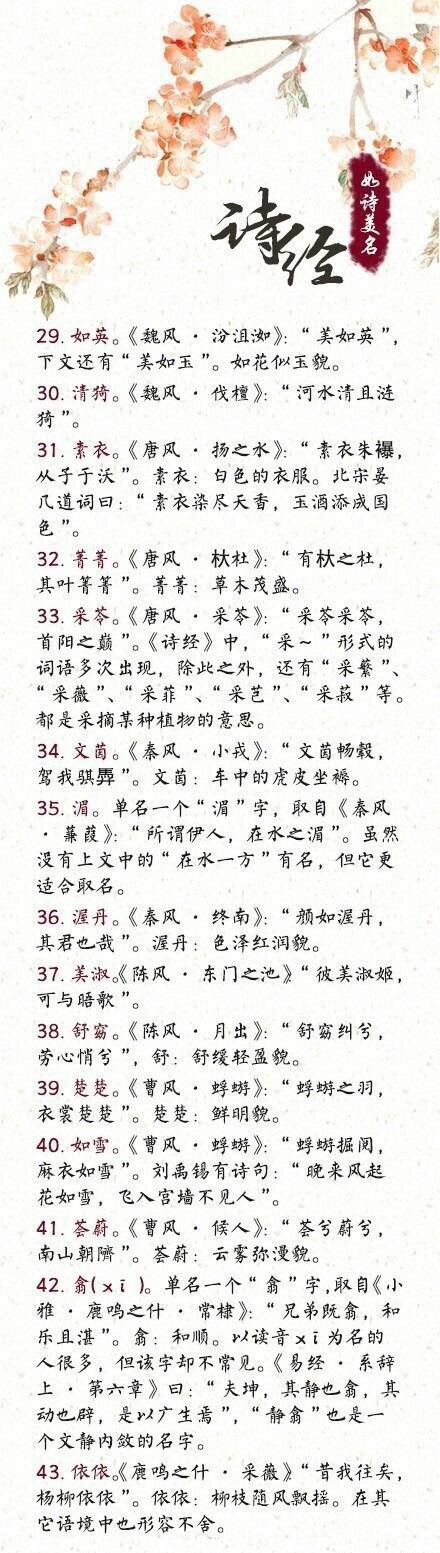 诗经
如诗美名
29. 如英。《魏风 · 汾沮洳》：“美如英”，
下文还有“美如玉”。如花似玉貌。
30. 清猗。《魏风 · 伐檀》：“河水清且涟
猗”。
31. 素衣。《唐风 · 扬之水》：“素衣朱襮，
从子于沃”。素衣：白色的衣服。北宋晏
几道词曰：“素衣染尽天香，玉酒添成国
色”。
32. 菁菁。《唐风 · 杕杜》：“有杕之杜，
其叶菁菁”。菁菁：草木茂盛。
33. 采苓。《唐风 · 采苓》：“采苓采苓，
首阳之巅”。《诗经》中，“采~”形式的
词语多次出现，除此之外，还有“采蘩”、
“采薇”、“采菲”、“采芑”、“采菽”等。
都是采摘某种植物的意思。
34. 文茵。《秦风 · 小戎》：“文茵畅毂，
驾我骐馵”。文茵：车中的虎皮坐褥。
35. 湄。单名一个“湄”字，取自《秦风
· 蒹葭》：“所谓伊人，在水之湄”。虽然
没有上文中的“在水一方”有名，但它更
适合取名。
36. 渥丹。《秦风 · 终南》：“颜如渥丹，
其君也哉”。渥丹：色泽红润貌。
37. 美淑。《陈风 · 东门之池》“彼美淑姬，
可与晤歌”。
38. 舒窈。《陈风 · 月出》：“舒窈纠兮，
劳心悄兮”，舒：舒缓轻盈貌。
39. 楚楚。《曹风 · 蜉蝣》：“蜉蝣之羽，
衣裳楚楚”。楚楚：鲜明貌。
40. 如雪。《曹风 · 蜉蝣》：“蜉蝣掘阅，
麻衣如雪”。刘禹锡有诗句：“晚来风起
花如雪，飞入宫墙不见人”。
41. 荟蔚。《曹风 · 候人》：“荟兮蔚兮，
南山朝隮”。荟蔚：云雾弥漫貌。
42. 翕(xī)。单名一个“翕”字,取自《小
雅 · 鹿鸣之什 · 常棣》：“兄弟既翕，和
乐且湛”。翕：和顺。以读音xī为名的
人很多，但该字却不常见。《易经 · 系辞
上 · 第六章》曰：“夫坤，其静也翕，其
动也辟，是以广生焉”，“静翕”也是一
个文静内敛的名字。
43. 依依。《鹿鸣之什 · 采薇》“昔我往矣，
杨柳依依”。依依：柳枝随风飘摇。在其
它语境中也形容不舍。